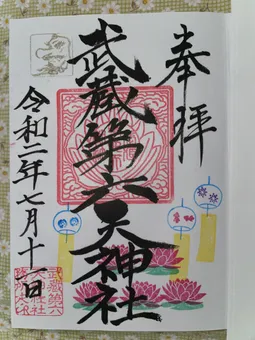 奉拝
武蔵第六天神社
令和二年七月十一日
武蔵第六